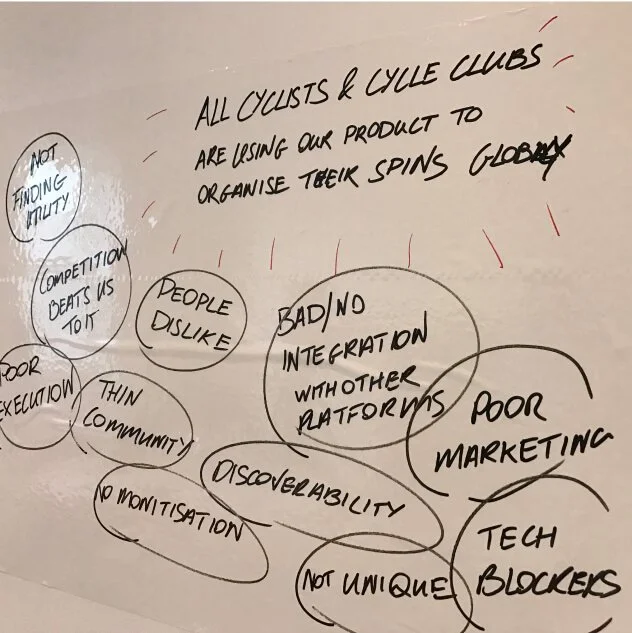 ALL CYCLISTS & CYCLE CLUBS
ARE USING OUR PRODUCT TO
ORGANISE THEIR SPINS GLOBALLY
NOT
FINDING
UTILITY
COMPETITION
BEATS US
TO IT
PEOPLE
DISLIKE
BAD/NO
INTEGRATION
WITH OTHER
PLATFORMS
POOR
EXECUTION
THIN
COMMUNITY
POOR
MARKETING
DISCOVERABILITY
NO MONITISATION
NOT UNIQUE
TECH
BLOCKERS